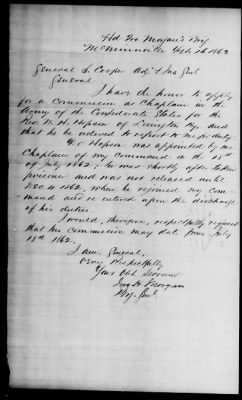 Hd Qrs Morgan's Div
McMinnville Feby 16 1863
General S. Cooper Adjt & Ins Genl
General.
I have the honor to apply
for a Commission as Chaplain in the
Army of the Confederate States for the
Rev. W. H. Hopson of Lexington Ky. and
that he be ordered to report to me for duty
Hopson was appointed by me
Chaplain of my Command on the 18th
of July 1862, & was shortly after taken
prisoner and was not released until
Dec 4 1862, when he rejoined my Com
mand and re entered upon the discharge
of his duties.
I would, therefore, respectfully request
that his commission may date from July
18th 1862.
I am, General,
Very Respectfully
Your Obt. Servant
Jno H Morgan